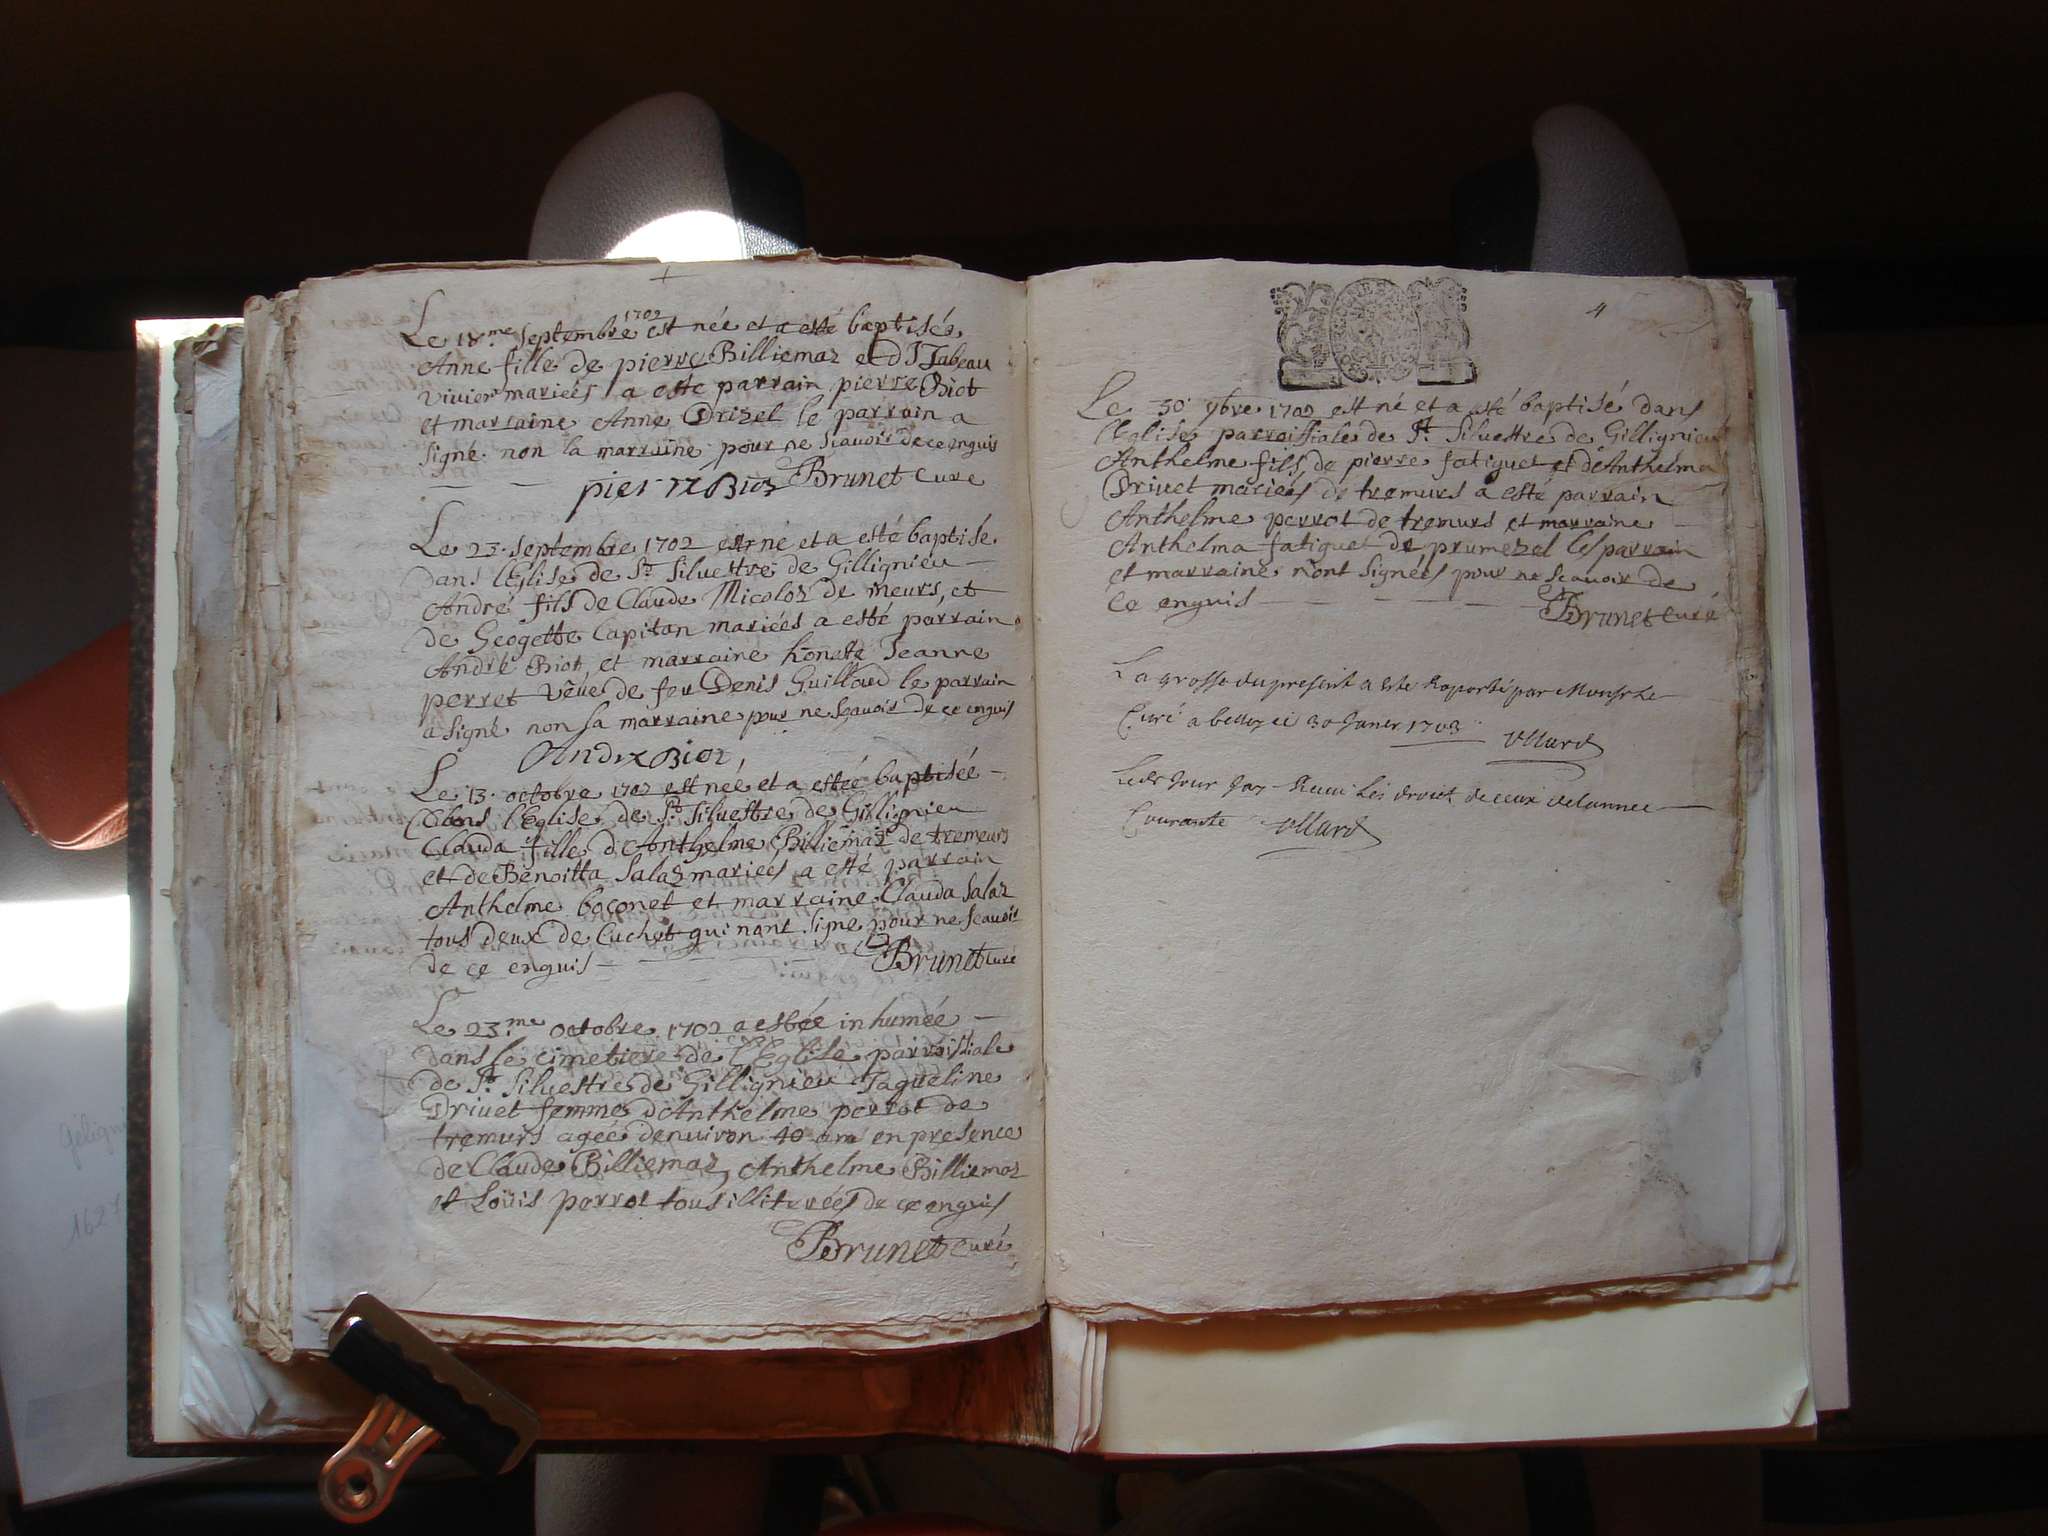 Le 18.me septembre 1702 est née et a esté baptisés
Anne fille de pierre Billiemaz et d'Isabeau
vivier mariées a esté parrain pierre Biot
et marraine Anne Drizel le parrain a
signé non la marraine pour ne scauoir de ce enguis
pierre Bioz Brunet Curé
Le 23. septembre 1702 est né et a esté baptisé
dans l'Eglise de St. Siluestre de Gillignieu
André fils de Claude Micoloz de meurs, et
de Geogette Capitan mariées a esté parrain
André Biot, et marraine honete Jeanne
perret vêue de feu Denis Guilloud le parrain
a signé non sa marraine pour ne scauoir de ce enguis
Andre Bioz
Le 13. octobre 1702 est née et a estée baptisée
dans l'Eglise de St. Siluestre de Gillignieu
Clauda fille d'Anthelme Billiemaz de tremeurs
et de Benoitta Salaz mariees a esté parrain
Anthelme boconet et marraine Clauda Salaz
tous deux de Cuchet qui nont signe pour ne scauoir
de ce enguis Brunet Curé
Le 23.me octobre 1702 a estée inhumée
dans le cimetiere de l'Eglise parroissiale
de St. Siluestre de Gillignieu Jaqueline
Driuet femme d'Anthelme perrot de
tremurs agée denuiron 40 ans en presence
de Claude Billiemaz, Anthelme Billiemaz
et Loüis perrot tous illiterées de ce enguis
Brunet Curé
4
Le 30 9bre 1702 est né et a esté baptisé dans
l'Eglise parroissiale de St. Siluestre de Gillignieu
Anthelme fils de pierre fatiguet et d'Anthelma
Driuet mariées de tremurs a esté parrain
Anthelme perrot de tremurs et marraine
Anthelma fatiguet de prumezel les parrain
et marraine n'ont signées pour ne scauoir de
ce enguis Brunet Curé
La grosse du present a esté Raporté par Monsr Le
Curé a belley ci 30 Januer 1703 Ollard
Ledt Jour Jay Receu les droits de ceux de lannee
Courante Ollard
1627